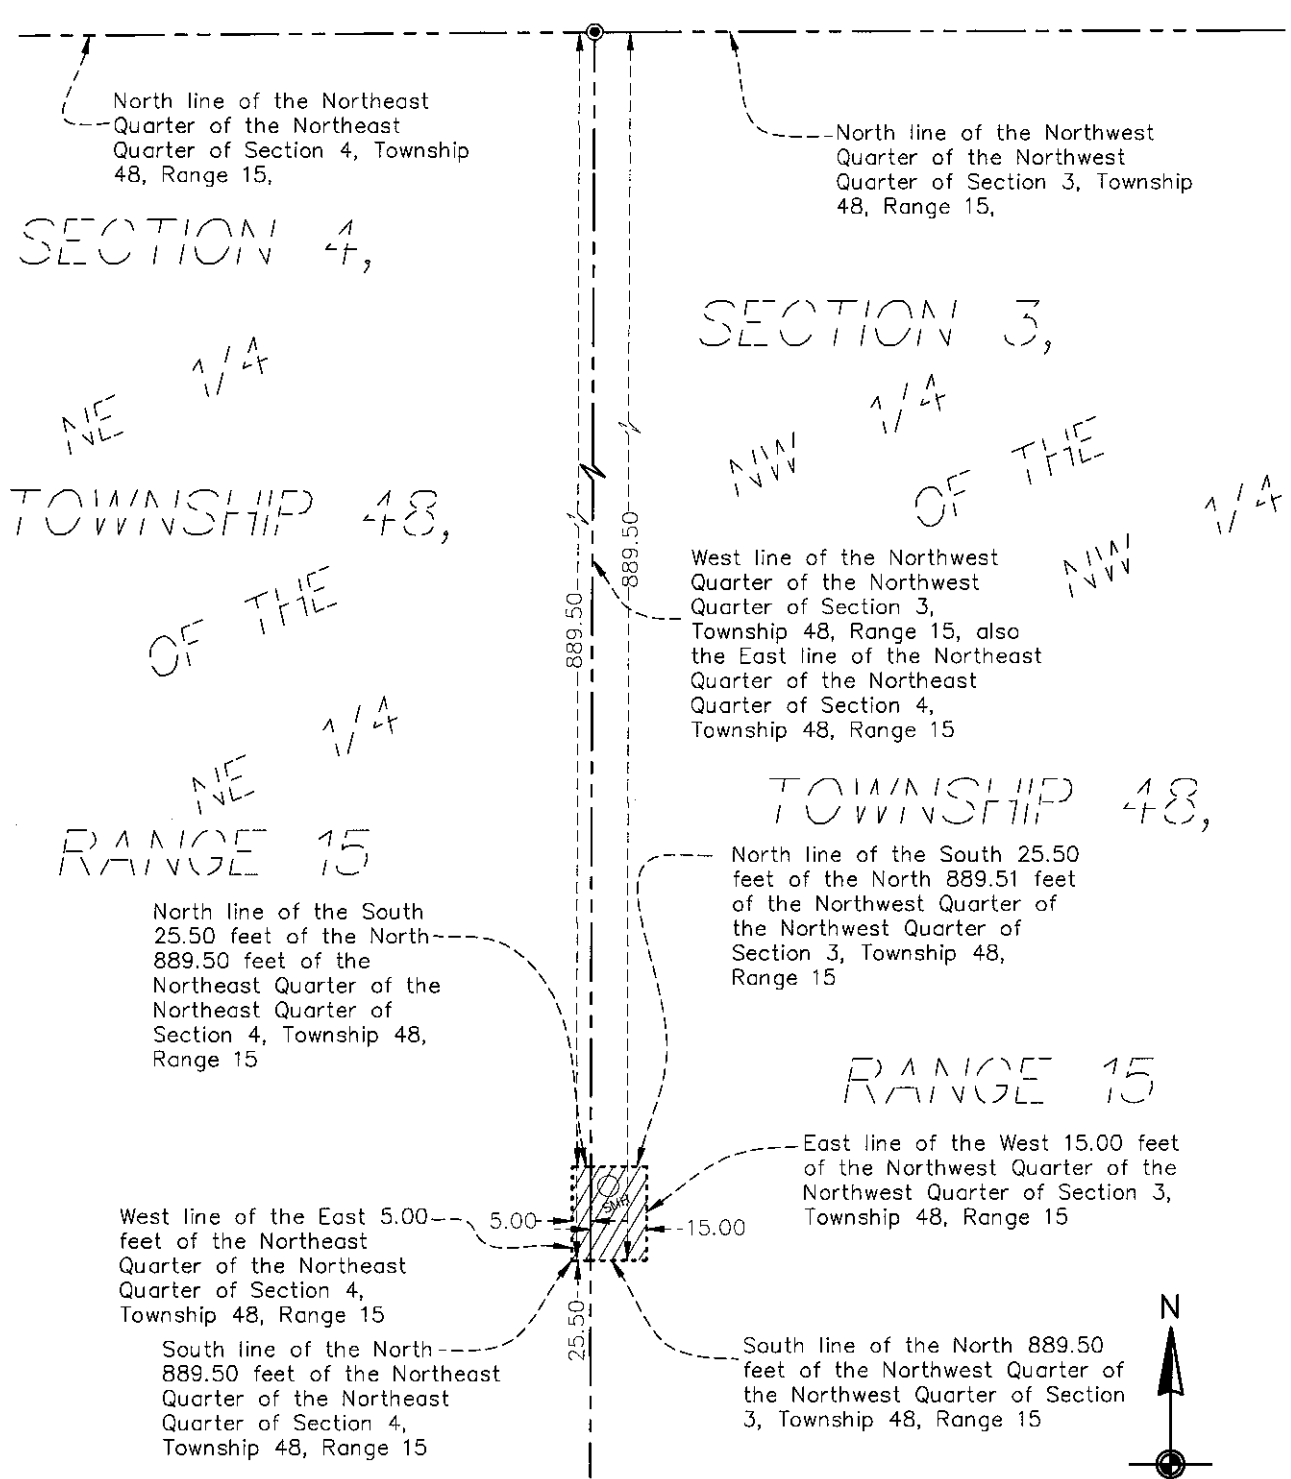 North line of the Northeast
Quarter of the Northeast
Quarter of Section 4, Township
48, Range 15,
North line of the Northwest
Quarter of the Northwest
Quarter of Section 3, Township
48, Range 15,
SECTION 4,
SECTION 3,
NE 1/4
OF THE
NE 1/4
NW 1/4
OF THE
NW 1/4
TOWNSHIP 48,
889.50
889.50
West line of the Northwest
Quarter of the Northwest
Quarter of Section 3,
Township 48, Range 15, also
the East line of the Northeast
Quarter of the Northeast
Quarter of Section 4,
Township 48, Range 15
TOWNSHIP 48,
RANGE 15
North line of the South 25.50
feet of the North 889.51 feet
of the Northwest Quarter of
the Northwest Quarter of
Section 3, Township 48,
Range 15
North line of the South
25.50 feet of the North
889.50 feet of the
Northeast Quarter of the
Northeast Quarter of
Section 4, Township 48,
Range 15
RANGE 15
East line of the West 15.00 feet
of the Northwest Quarter of the
Northwest Quarter of Section 3,
Township 48, Range 15
SMH
5.00
15.00
West line of the East 5.00
feet of the Northeast
Quarter of the Northeast
Quarter of Section 4,
Township 48, Range 15
25.50
South line of the North
889.50 feet of the Northeast
Quarter of the Northeast
Quarter of Section 4,
Township 48, Range 15
South line of the North 889.50
feet of the Northwest Quarter of
the Northwest Quarter of Section
3, Township 48, Range 15
N